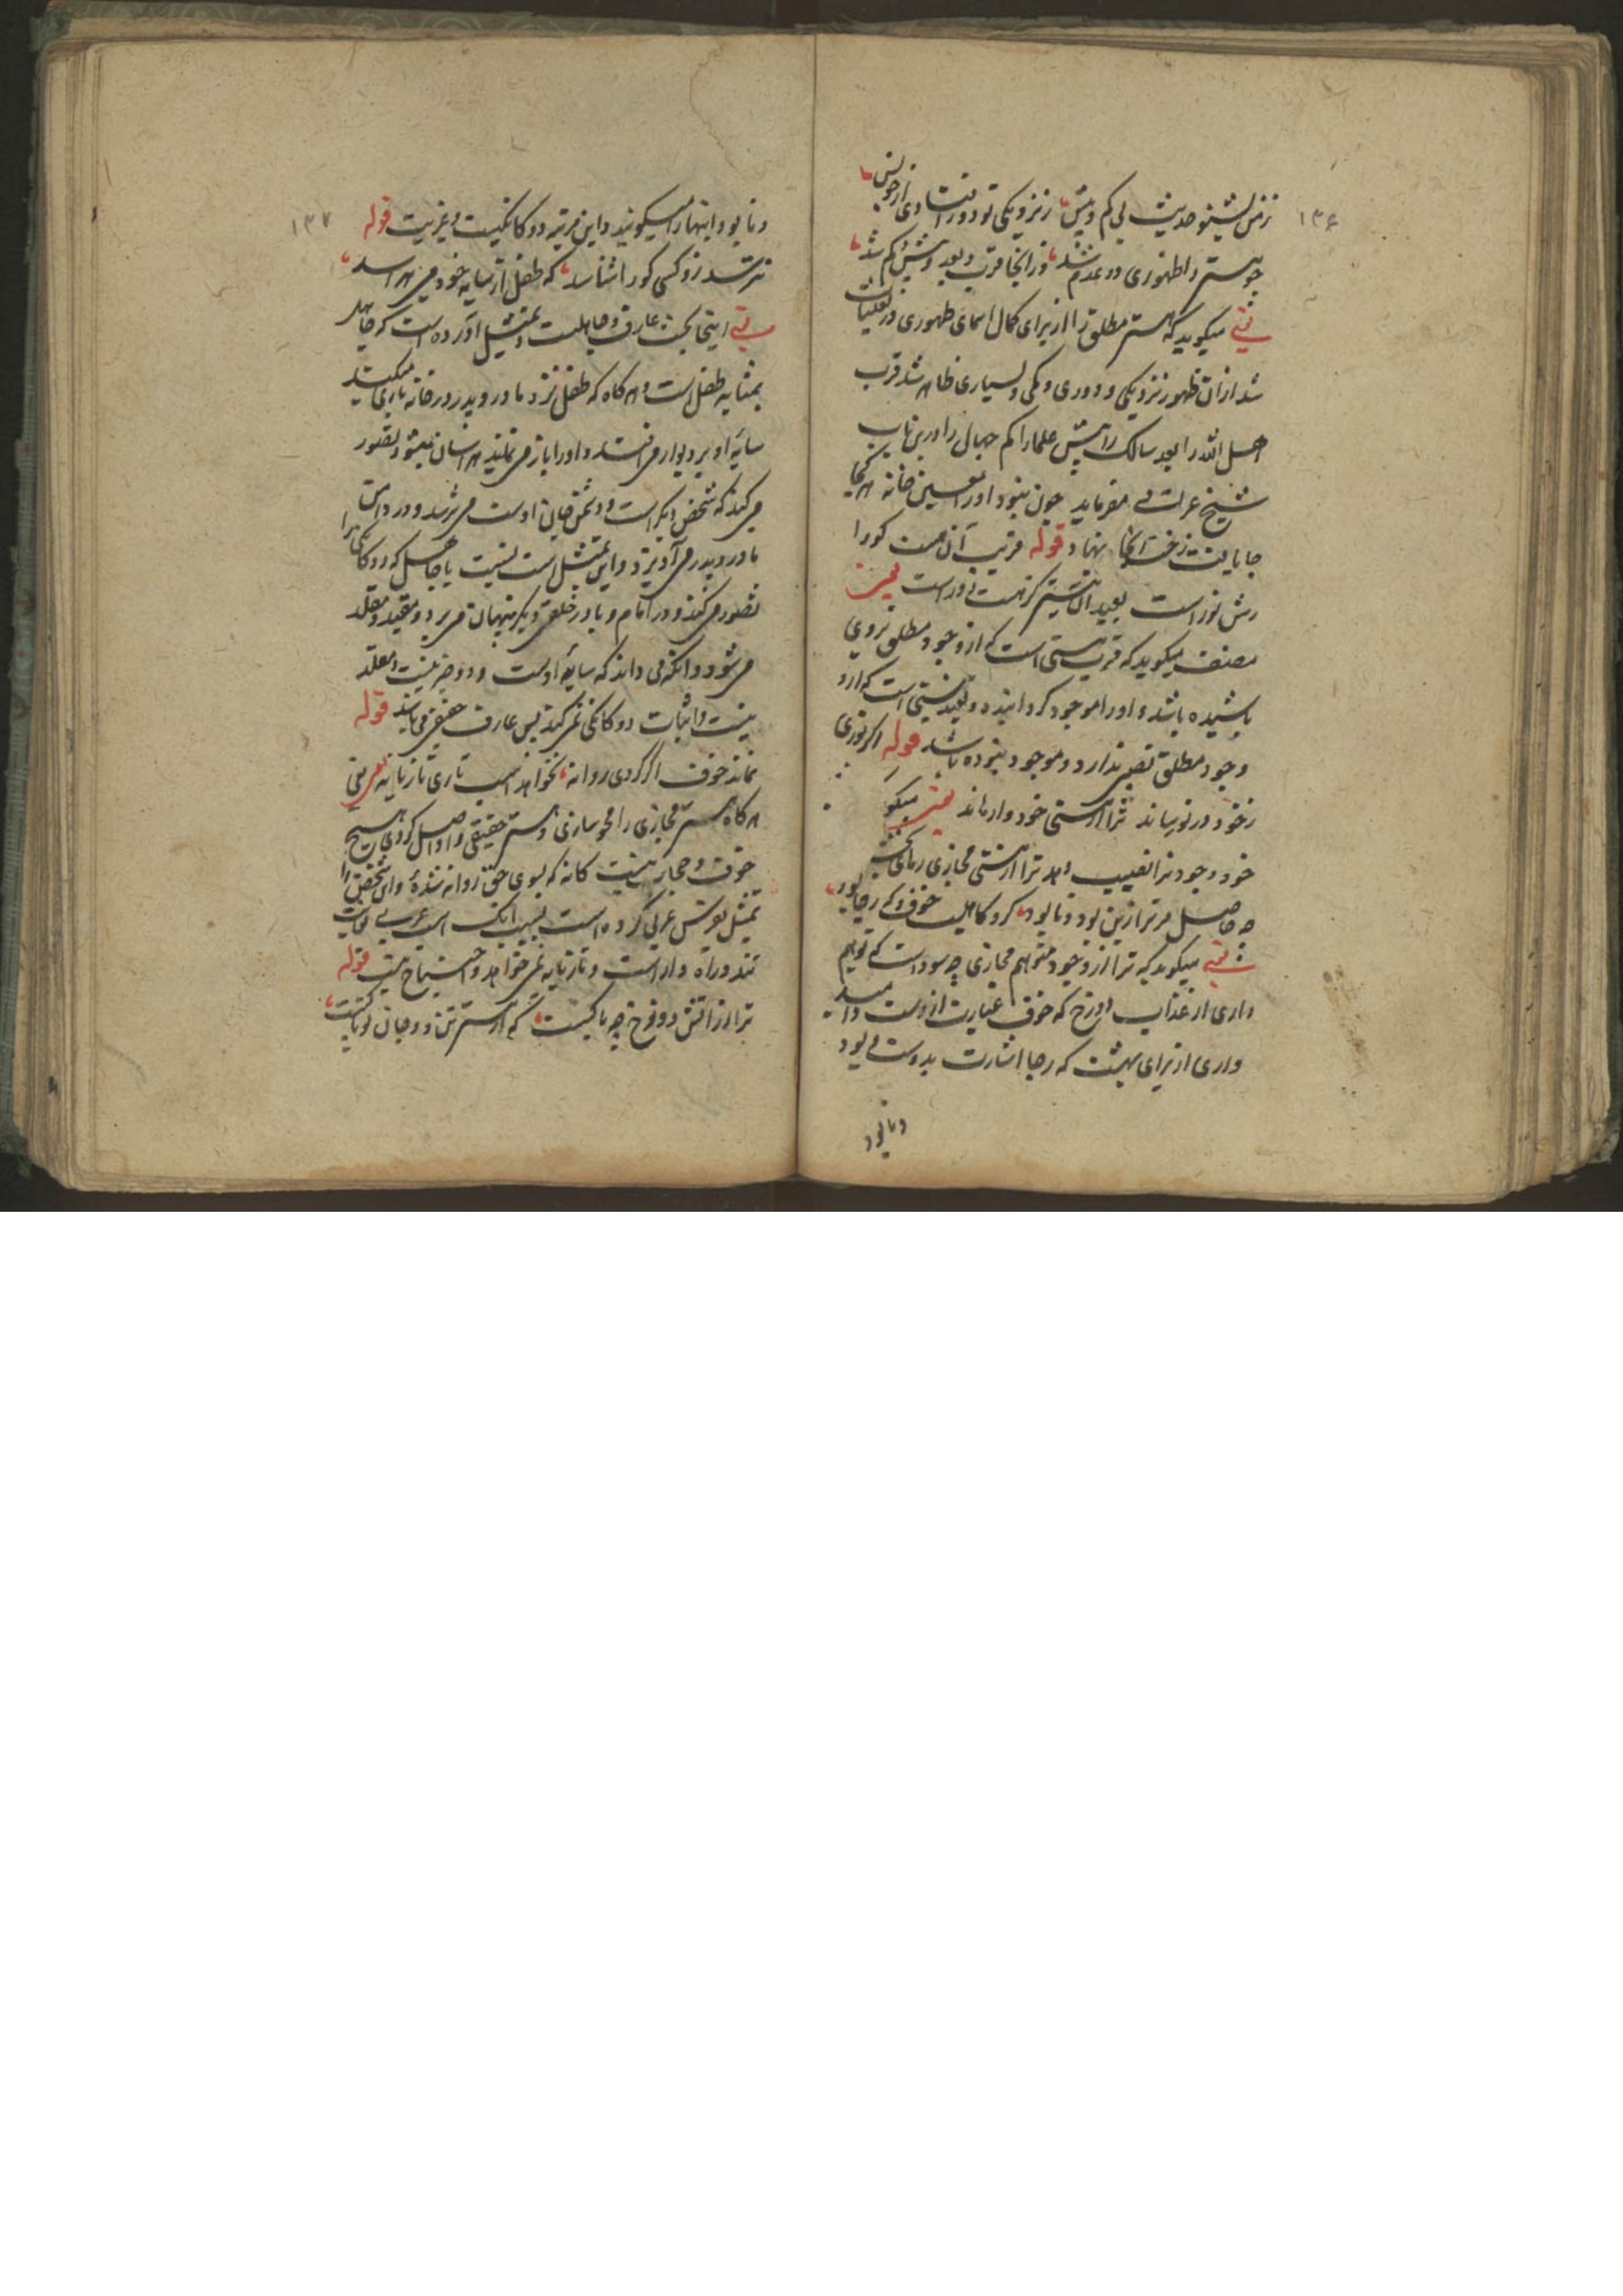 ۱۳۶
ز من بشنو حدیث بی کم و بیش ز نزدیکی تو دور افتادی از خویش
چو هستی را ظهوری در عدم شد از آنجا قرب و بعد و بیش و کم شد
یعنی میکوید که هستی مطلق را از برای کمال اسمای ظهوری در تعینات
شد از ان ظهور نزدیکی و دوری و کمی و بسیاری ظاهر شد قرب
اهل الله را بعد سالک را بیش علما را کم جهال را درین باب
شیخ عزلتی میفرماید چون نبود او را معین خانه هر کجا
جا یافت رخت آنجا نهاد قوله قریب آن هست کو را
رش نور است بعید آن نیستی کز هست دور است یعنی
مصنف میکوید که قریب هستی است که از وجود مطلق بروی
پاشیده باشد و او را موجود کردانیده و بعید نیستی است که از
وجود مطلق نصیبی ندارد و موجود نبوده باشد قوله اکر نوری
ز خود در تو رساند ترا از هستی خود وارهاند یعنی میکو
خود وجود ترا نصیب دهد ترا از هستی مجازی رهایی بخشد
چه حاصل مر ترا زین بود و نابود کزو کاهیت خوف و که رجا بود
یعنی میکوید که ترا از وجود متوهم مجازی چه سود است که توهم
داری از عذاب دوزخ که خوف عبارت از وست و امید
داری از برای بهشت که رجا اشارت بدوست بود
ونابود
۱۳۷
ونابود اینها را میکویند و این مرتبه دوکانکیست و غیریت قوله
نترسد زو کسی کو را شناسد که طفل از سایه خود می هراسد
یعنی اینجا بحث عارف و جاهلست و تمثیل آورده است که جاهل
بمثابه طفل است و هر کاه که طفل نزد مادر و پدر در خانه بازی میکند
سایه او بر دیوار می افتد و او را باز می نماید هراسان میشود تصور
می کند که شخص دیکر است و دشمن جان اوست می ترسد و در دامن
مادر و پدر می آویزد و این تمثیل است نسبت با جاهل که دوکانکی را
تصور می کند و در انام و یا در خلق دیکر پنهان می برد و مقید و مقلد
می شود و آنکه می داند که سایه اوست و دو چیز نیست و مقلد
نیست و اثبات دوکانکی نمی کند پس عارف حقیقی می باشد قوله
نماند خوف اکر کردی روانه نخواهد اسب تازی تازیانه یعنی
هر کاه هستی مجازی را محو سازی و هستی حقیقی را واصل کردی هیچ
خوف و حجاب نیست کانه که بسوی حق روانه شدهٔ و این شخص را
تمثیل بفرس عربی کرده است بسبب آنک اسب عربی بغایت
تند و راه وار است و تازیانه نمی خواهد و احتیاج نیست قوله
ترا از آتش دوزخ چه باکست که از هستی تن و جان تو پاکست